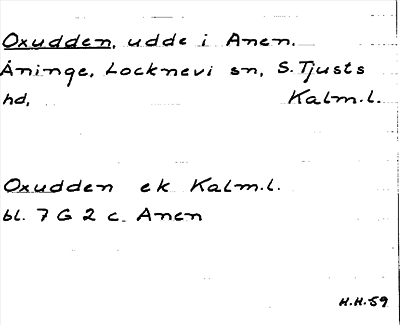 Oxudden, udde i Anen.
Åninge, Locknevi sn, S. Tjusts
hd, Kalm.l.
Oxudden ek Kalm.l.
bl. 7 G 2 c. Anen
H.H.-59